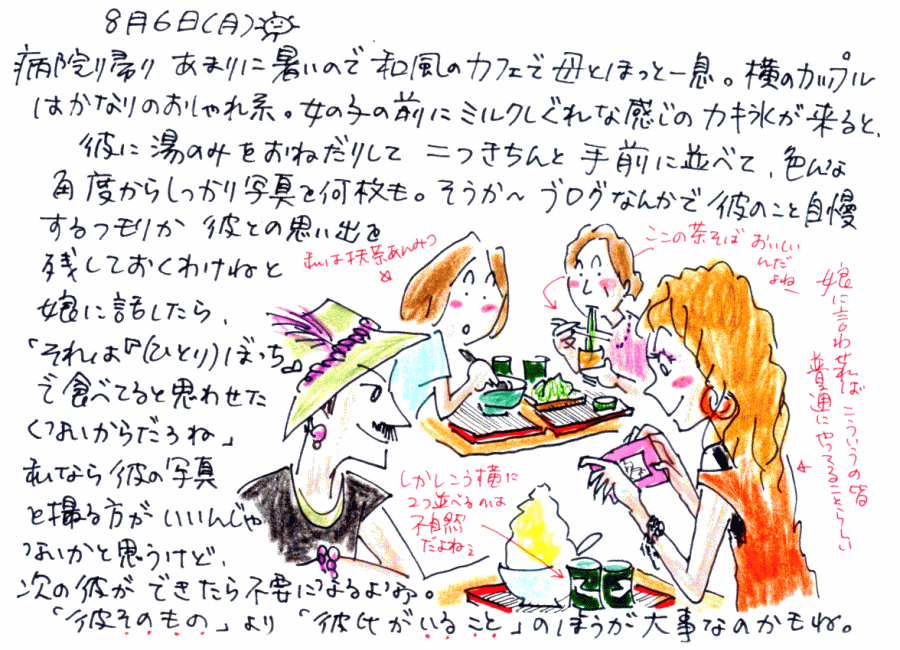 8月6日(月)
病院り帰り あまりに暑いので 和風のカフェで 母とほっと一息。横のカップル
はかなりのおしゃれ系。女の子の前にミルクしぐれな感じの カキ氷が来ると、
彼に湯のみをおねだりして 二つきちんと手前に並べて、色んな
角度からしっかり写真を何枚も。そうか〜ブログなんかで彼のこと自慢
するつもりか 彼との思い出を
残しておくわけねと
娘に話したら、
「それは『(ひとり)ぼっち』
で食べてると思わせた
くないからだろね」
私なら彼の写真
を撮る方がいいんじゃ
ないかと思うけど、
次の彼ができたら不要になるよなァ。
「彼そのもの」より「彼氏がいること」のほうが大事なのかもね。
私は抹茶あんみつ
ここの茶そば おいしい
んだ
よねー
娘に言わせれば こういうの皆
普通にやってることらしい
しかしこう横に
2つ並べるのは
不自然
だよね?